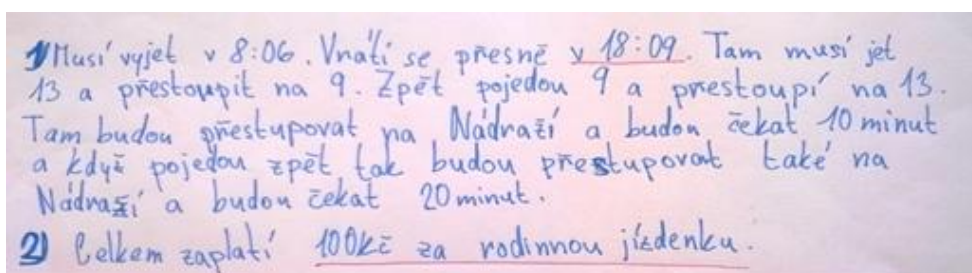 1) Musí vyjet v 8:06. Vrátí se přesně v 18:09. Tam musí jet
13 a přestoupit na 9. Zpět pojedou 9 a prestoupí na 13.
Tam budou přestupovat na Nádraží a budou čekat 10 minut
a když pojedou zpět tak budou přestupovat také na
Nádraží a budou čekat 20 minut.
2) Celkem zaplatí 100kč za rodinnou jízdenku.